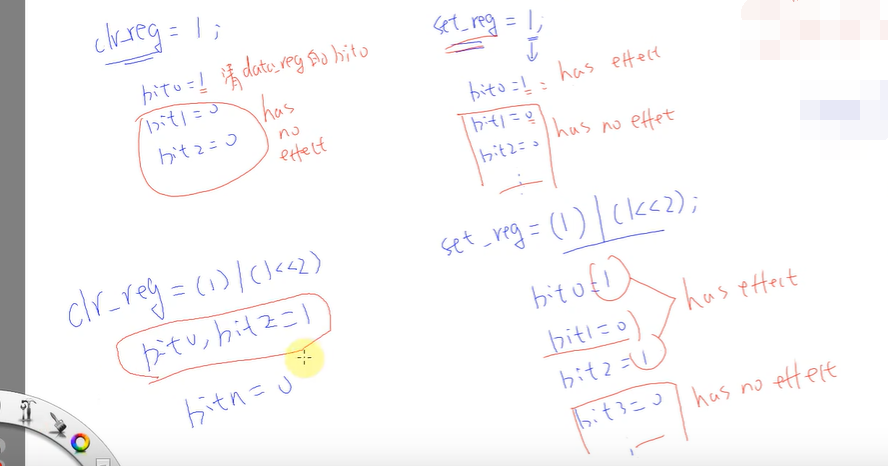 clr_reg = 1;
bit0=1 清data_reg的bit0
bit1=0
bit2=0
has
no
effect
set_reg = 1;
bit0=1 = has effect
bit1=0
bit2=0
has no effet
set_reg = (1) | (1<<2);
bit0=1
bit1=0
bit2=1
has effect
bit3=0
has no effect
clr_reg = (1) | (1<<2)
bit0, bit2=1
bitn=0